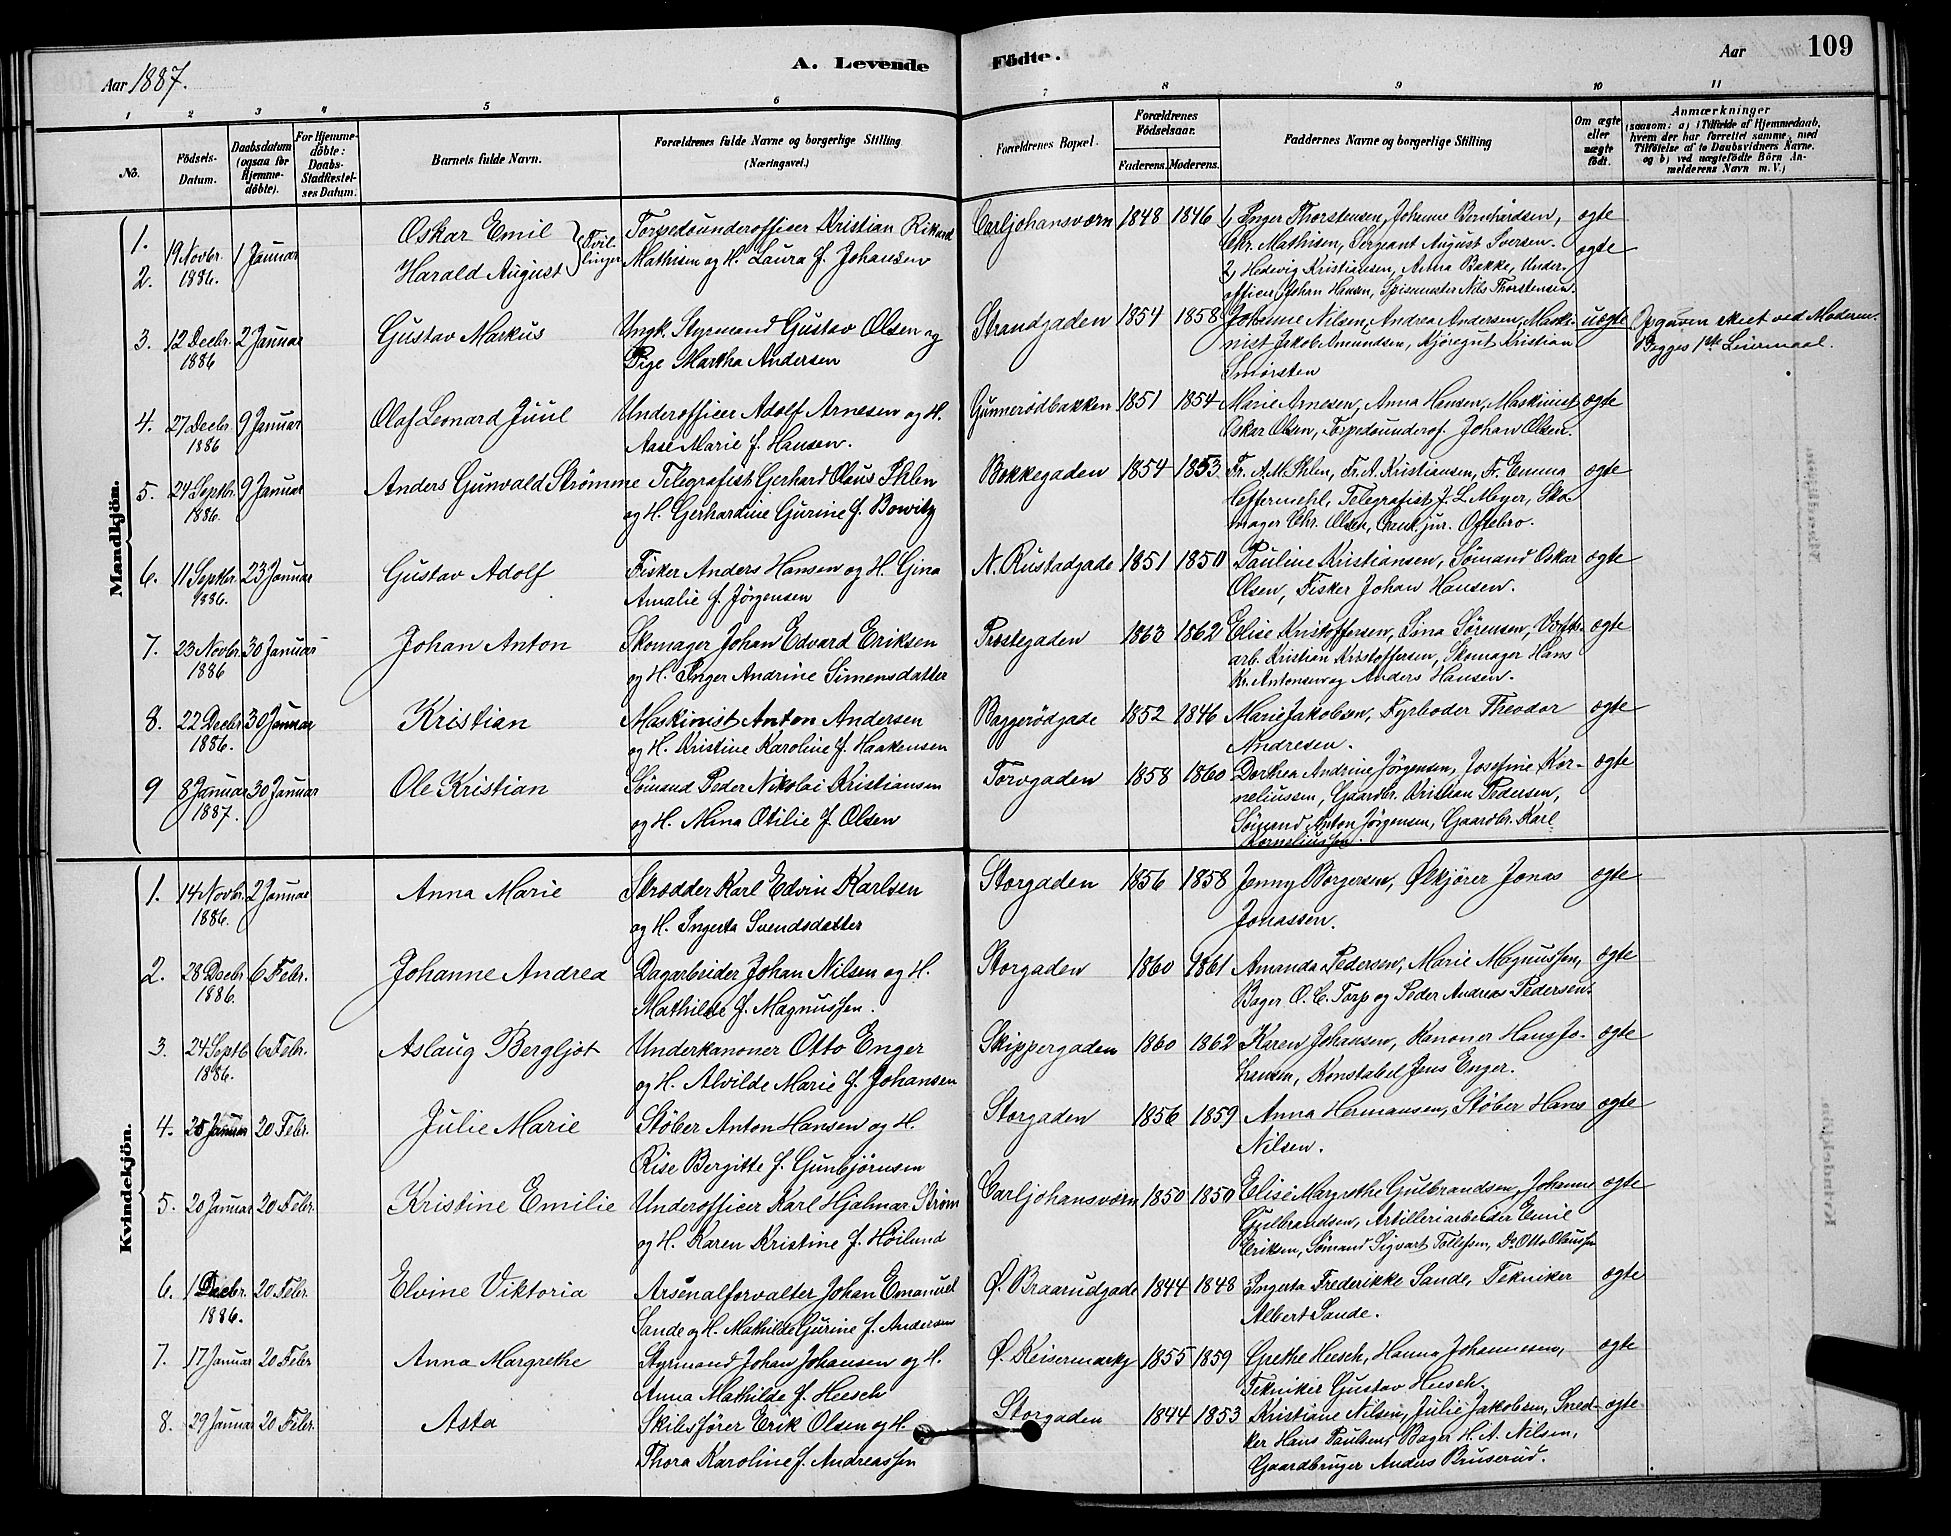 Aar 1887.
A. Levende
Födte.
Aar
109
1 2 3 4 5 6 7 8 9 10 11
No.
Födsels-Datum.
Daabsdatum (ogsaa for Hjemme-döbte).
For Hjemme-döbte: Daabs-Stadfæstel-ses Datum.
Barnets fulde Navn.
Forældrenes fulde Navne og borgerlige Stilling (Næringsvei.)
Forældrenes Bopæl.
Forældrenes Födselsaar.
Faderens. Moderens.
Faddernes Navne og borgerlige Stilling
Om ægte eller uægte födt.
Anmærkninger
(saasom: a) i Tilfælde af Hjemmedaab,
hvem der har forrettet samme, med
Tilföielse af to Daabsvidners Navne.
og b) ved uægtefödte Börn An-
melderens Navn m. V.)
Mandkjön.
1. 19 Novbr. 1 Januar Oskar Emil } Tvil- Torpedounderofficer Kristian Rikard Carljohansværn 1848 1846 1, Inger Thorstensen, Johanne Bernhardsen, ægte
2. 1886. Harald August linger Mathisen og H. Laura f. Johansen Chr. Mathisen, Sergeant August Iversen. ægte
2, Hedevig Kristiansen, Anna Bakke, Under-
officer Johan Hansen, Spisemester Nils Thorstensen.
3. 12 Decbr. 2 Januar Gustav Markus Ungk. Styrmand Gustav Olsen og Strandgaden 1854 1858 Johanne Nilsen, Andrea Andersen, Maski- uægte Opgaven skeet ved Moderen.
1886 Pige Martha Andersen nist Jakob Amundsen, Kjøregut Kristian Begges 1ste Leiermaal.
Smørsten
4. 27 Decbr. 9 Januar Olaf Leonard Juul Underofficer Adolf Arnesen og H. Gunnerødbakken 1851 1854 Marie Arnesen, Anna Hansen, Maskinist ægte
1886 Aase Marie f. Hansen. Oskar Olsen, Torpedounderof. Johan Olsen.
5. 24 Septbr. 9 Januar Anders Gunvald Strømme Telegrafist Gerhard Olaus Ihlen Bakkegaden 1854 1853 Fr. A. M. Ihlen, Fr. A. Kristiansen, F. Emma ægte
1886. og H. Gerhardine Gurine f. Bowitz Heffermehl, Telegrafist J. L. Meyer, Sko-
mager Chr. Olsen, Cand. jur. Oftebro.
6. 11 Septbr. 23 Januar Gustav Adolf Fisker Anders Hansen og H. Gina N. Rustadgade 1851 1850 Pauline Kristiansen, Sømand Oskar ægte
1886. Amalie f. Jørgensen Olsen, Fisker Johan Hansen.
7. 23 Novbr. 30 Januar Johan Anton Skomager Johan Edvard Eriksen Prestegaden 1863 1862 Elise Kristoffersen, Sina Sørensen, Værks- ægte
1886 og H. Inger Andrine Simensdatter arb. Kristian Kristoffersen, Skomager Hans
Kr. Antonsen og Anders Hansen.
8. 22 Decbr. 30 Januar Kristian Maskinist Anton Andersen Baggerødgade 1852 1846 Marie Jakobsen, Fyrbøder Theodor ægte
1886. og H. Kristine Karoline f. Haakensen Andresen.
9 8 Januar 30 Januar Ole Kristian Sømand Peder Nikolai Kristiansen Torvgaden 1858 1860 Dorthea Andrine Jørgensen, Josefine Kor- ægte
1887. og H. Mina Otilie f. Olsen neliussen, Gaardbr. Kristian Pedersen,
Sømand Anton Jørgensen, Gaardbr. Karl
Korneliussen.
Kvindekjön.
1. 14 Novbr. 2 Januar Anna Marie Skrædder Karl Edvin Karlsen Storgaden 1856 1858 Jenny Borgersen, Ølkjører Jonas ægte
1886. og H. Ingerta Svendsdatter Jonassen.
2. 28 Decbr. 6 Febr. Johanne Andrea Dagarbeider Johan Nilsen og H. Storgaden 1860 1861 Amanda Pedersen, Marie Magnussen, ægte
1886. Mathilde f. Magnussen. Bager O. C. Torp og Peder Andreas Pedersen.
3. 24 Septb. 6 Febr. Aslaug Bergljot Underkanoner Otto Enger Skippergaden 1860 1862 Karen Johansen, Kanoner Hans Jo- ægte
1886. og H. Alvilde Marie f. Johansen hansen, Konstabel Jens Enger.
4. 25 Januar 20 Febr. Julie Marie Støber Anton Hansen og H. Storgaden 1856 1859 Anna Hermansen, Støber Hans ægte
Rise Bergitte f. Gunbjørnsen Nilsen.
5. 20 Januar 20 Febr. Kristine Emilie Underofficer Karl Hjalmar Strøm Carljohansværn 1850 1850 Elise Margrethe Gulbrandsen, Johanne ægte
og H. Karen Kristine f. Høilund Gulbrandsen, Artilleriarbeider Emil
Eriksen, Sømand Sigvart Tollefsen, Do Otto Olaussen
6. 1 Decbr. 20 Febr. Elvine Viktoria Arsenalforvalter Johan Emanuel Ø. Braarudgade 1844 1848 Ingerta Frederikke Sande, Tekniker ægte
1886. Sande og H. Mathilde Gurine f. Andersen Albert Sande.
7. 17 Januar 20 Febr Anna Margrethe Styrmand Johan Johansen og H. Ø. Keisermarkg 1855 1859 Grethe Heesch, Hanna Johannesen, ægte
Anna Mathilde f. Heesch Tekniker Gustav Heesch.
8. 29 Januar 20 Febr. Asta Skibsfører Erik Olsen og H. Storgaden 1844 1853 Kristiane Nilsen, Julie Jakobsen, Sned- ægte
Thora Karoline f. Andreassen ker Hans Paulsen, Bager H. A. Nilsen,
Gaardbruger Anders Bruserud.